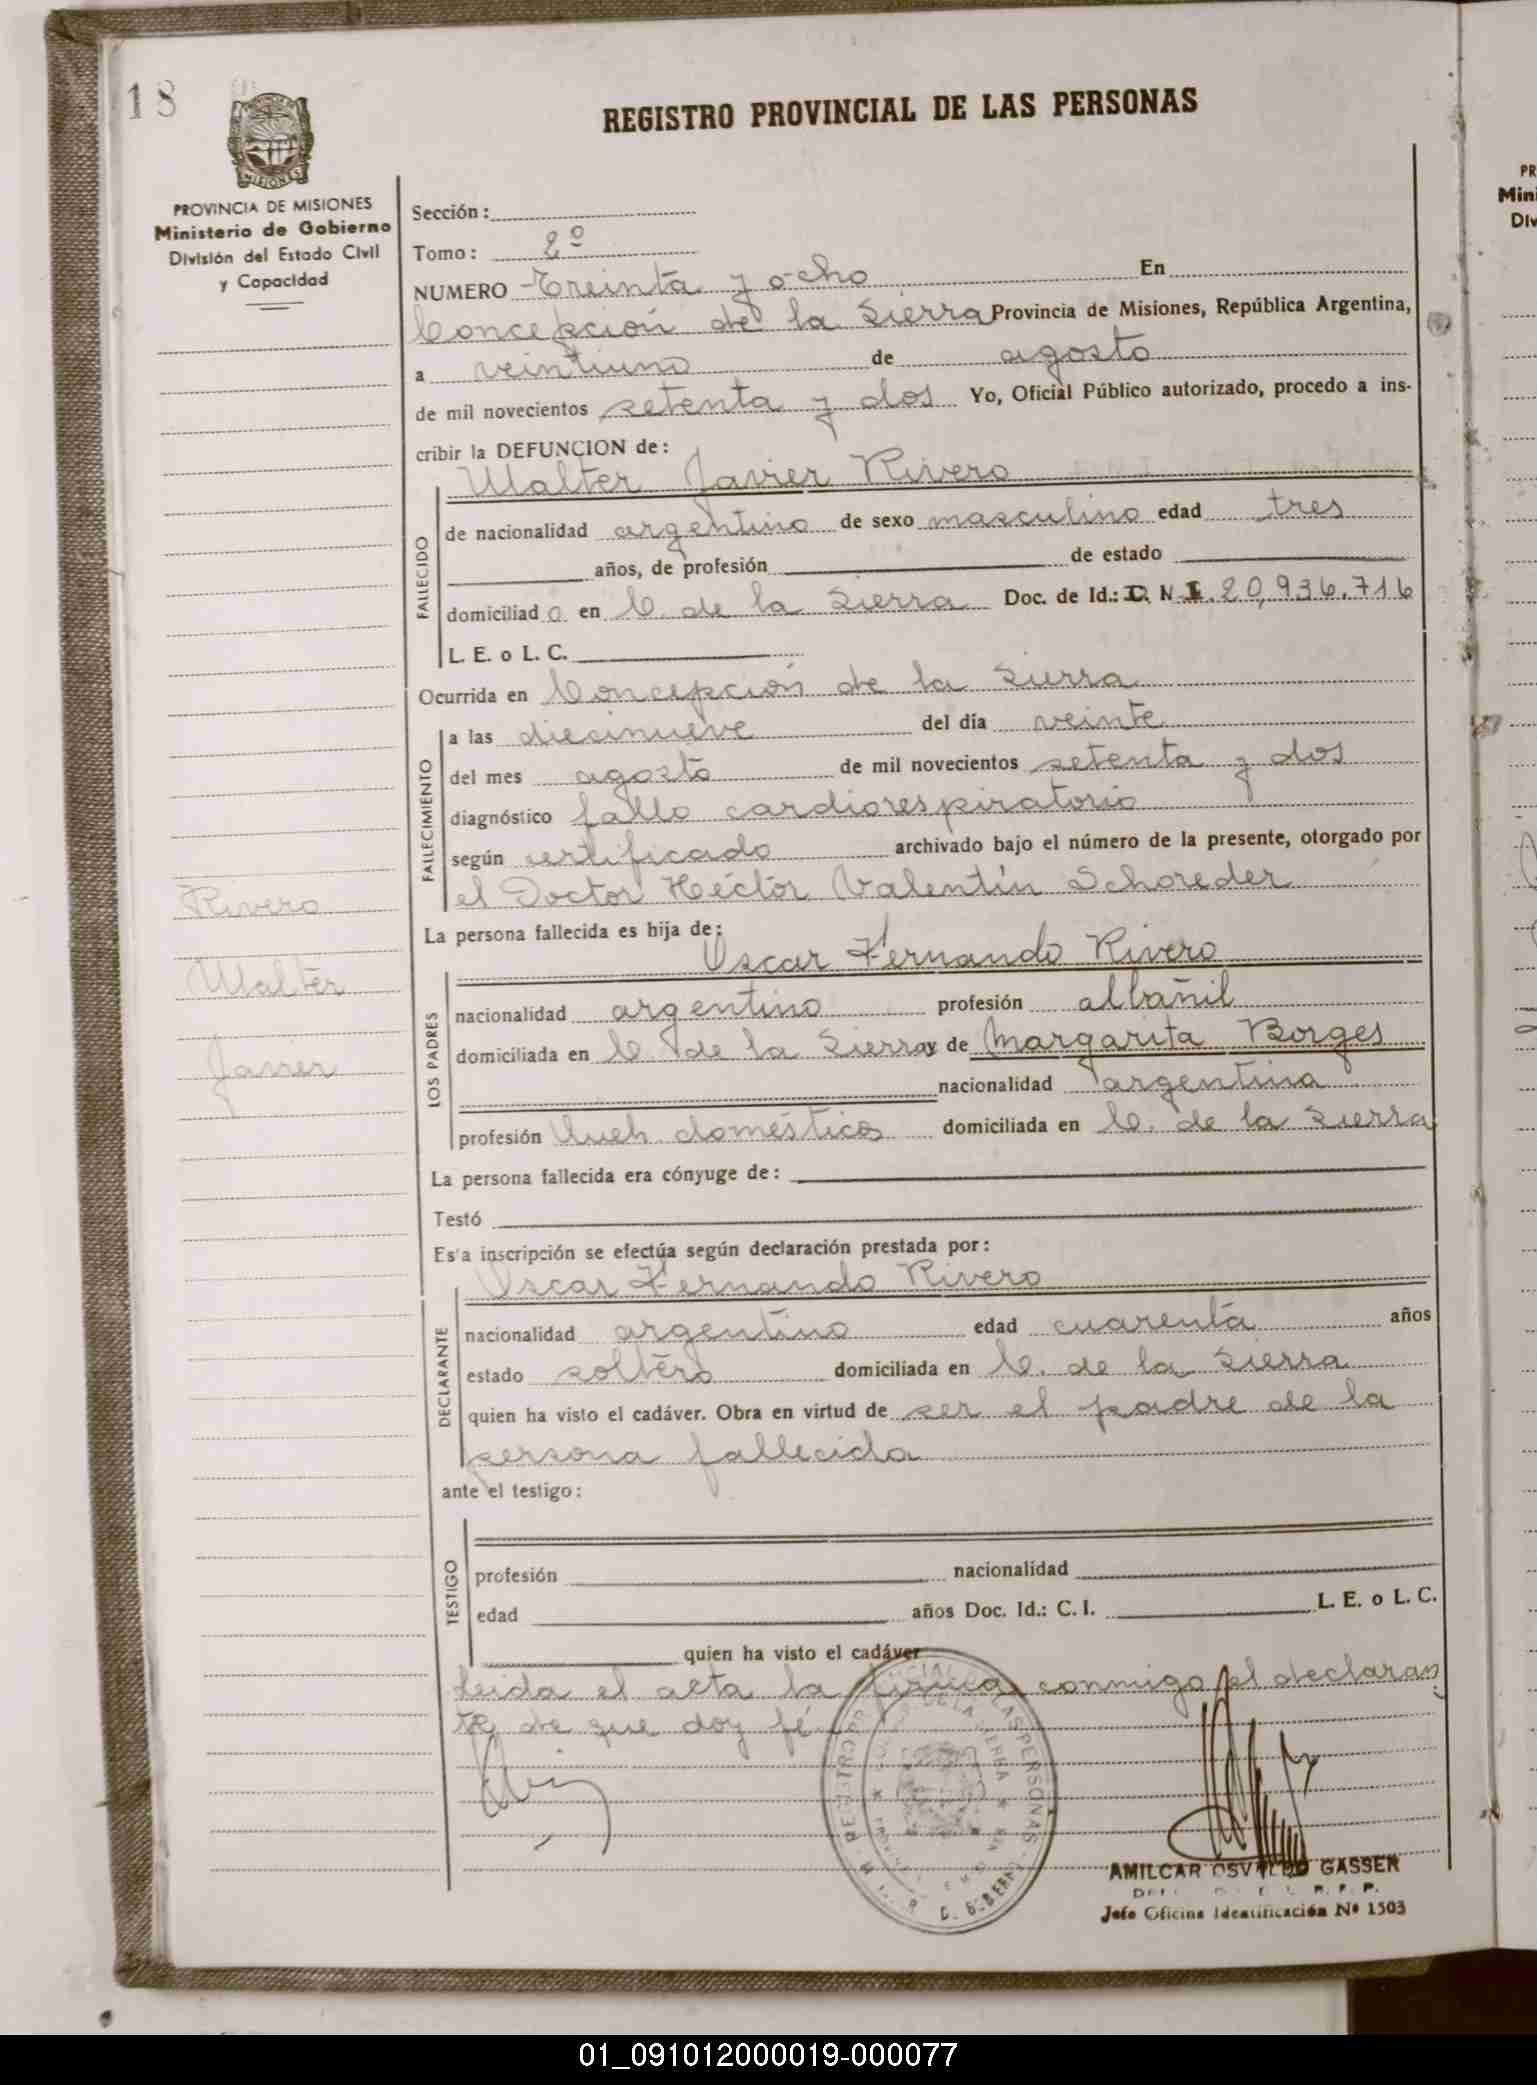 18
REGISTRO PROVINCIAL DE LAS PERSONAS
MISIONES
PROVINCIA DE MISIONES
Ministerio de Gobierno
División del Estado Civil
y Capacidad
Sección:
Tomo: 2º
NUMERO Treinta y ocho En
Concepción de la Sierra Provincia de Misiones, República Argentina,
a veintiuno de agosto
de mil novecientos setenta y dos Yo, Oficial Público autorizado, procedo a ins-
cribir la DEFUNCION de:
Walter Javier Rivero
FALLECIDO
de nacionalidad argentino de sexo masculino edad tres
años, de profesión de estado
domiciliad o en C. de la Sierra Doc. de Id.: D. N. I. 20,936.716
L. E. o L. C.
Ocurrida en Concepción de la Sierra
FALLECIMIENTO
a las diecinueve del día veinte
del mes agosto de mil novecientos setenta y dos
diagnóstico fallo cardiorespiratorio
según certificado archivado bajo el número de la presente, otorgado por
el Doctor Héctor Valentín Schoreder
Rivero
Walter
Javier
La persona fallecida es hija de:
Oscar Fernando Rivero
LOS PADRES
nacionalidad argentino profesión albañil
domiciliada en C. de la Sierra y de Margarita Borges
nacionalidad argentina
profesión Queh. domésticos domiciliada en C. de la Sierra
La persona fallecida era cónyuge de:
Testó
Es a inscripción se efectúa según declaración prestada por:
Oscar Fernando Rivero
DECLARANTE
nacionalidad argentino edad cuarenta años
estado soltero domiciliada en C. de la Sierra
quien ha visto el cadáver. Obra en virtud de ser el padre de la
persona fallecida
ante el testigo:
TESTIGO
profesión nacionalidad
edad años Doc. Id.: C. I. L. E. o L. C.
quien ha visto el cadáver
Leida el acta la firma conmigo el declaran
te de que doy fé
AMILCAR OSVALDO GASSER
R. P. P.
Jefe Oficina Identificación Nº 1503
01_091012000019-000077